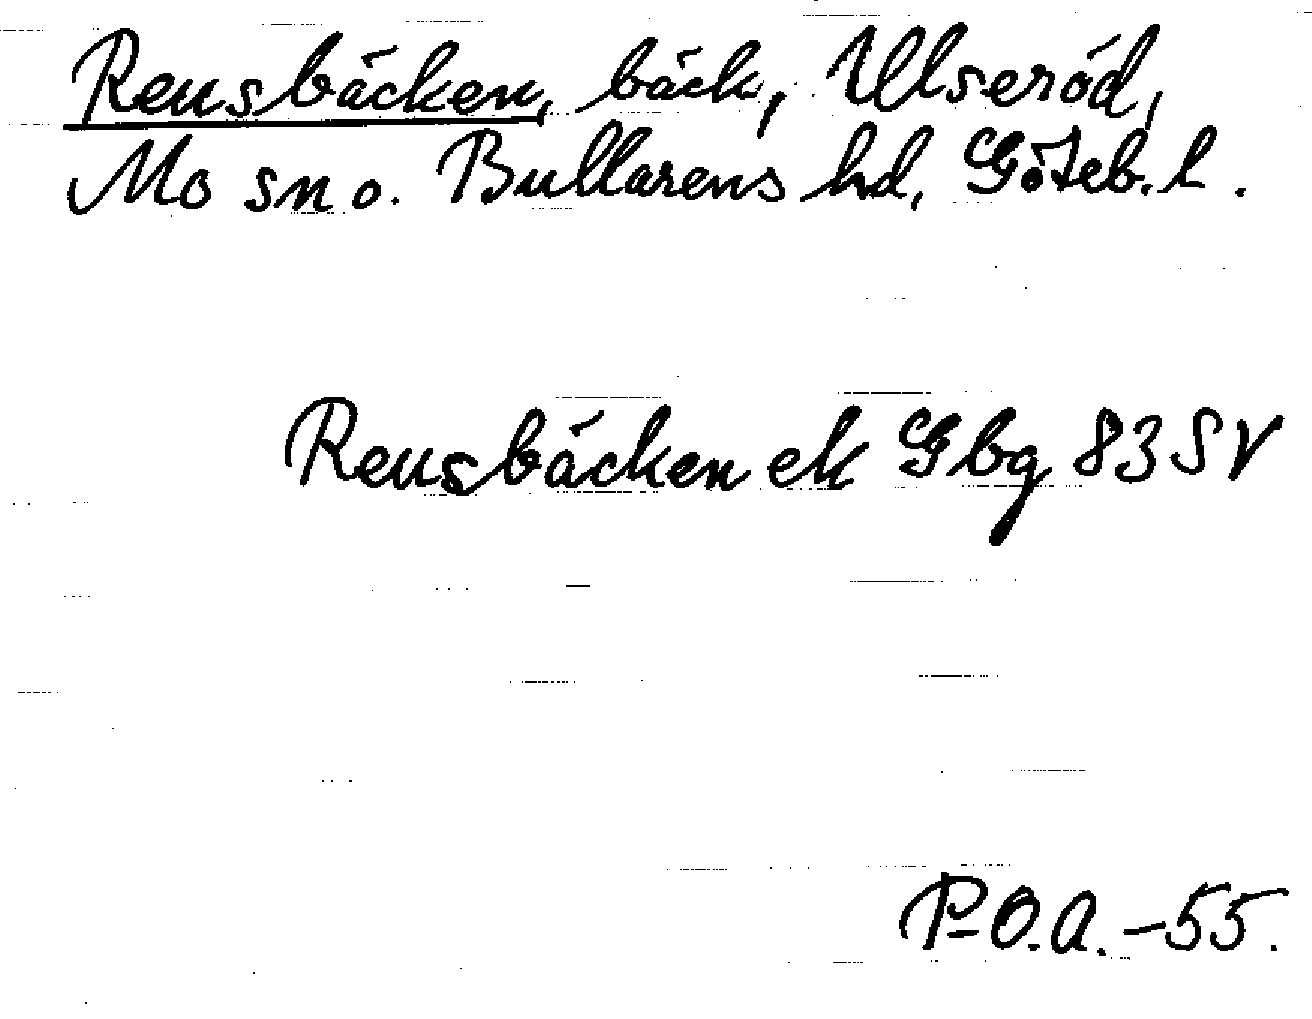 Rensbäcken, bäck, Ulseröd,
Mo sn o. Bullarens hd, Göteb. l.
Rensbäcken ek Gbg 83 SV
P-O.A. -55.